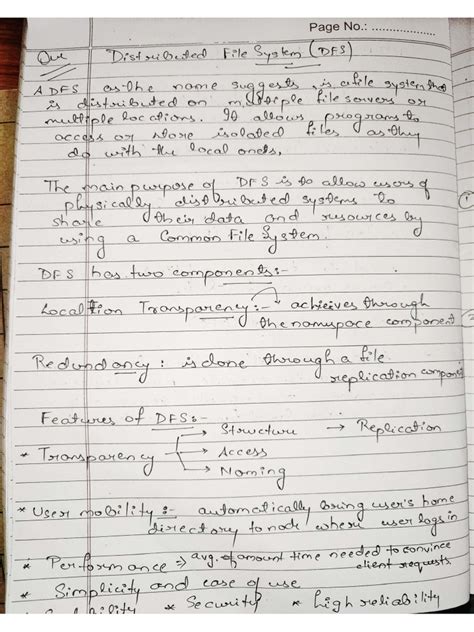 Page No.: ..................
Que Distributed File System (DFS)
A DFS as the name suggests, is a file system that
is distributed on multiple file servers or
multiple locations. It allows programs to
access or store isolated files as they
do with the local ones.
The main purpose of DFS is to allow users of
physically distributed systems to
share their data and resources by
using a Common File System.
DFS has two components:-
Location Transparency:- → achieives through
the namespace component
Redundancy : is done through a file
replication component
Features of DFS:-
* Transparency → Structure → Replication
→ Access
→ Naming
* User mobility :- automatically bring user's home
directory to node where user logs in
* Performance ⇒ avg. of amount time needed to convince
client requests.
* Simplicity and ease of use
* Security * high reliability